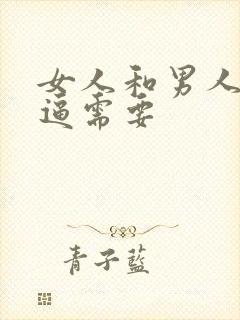 女人和男人
逼需要
青子蓝